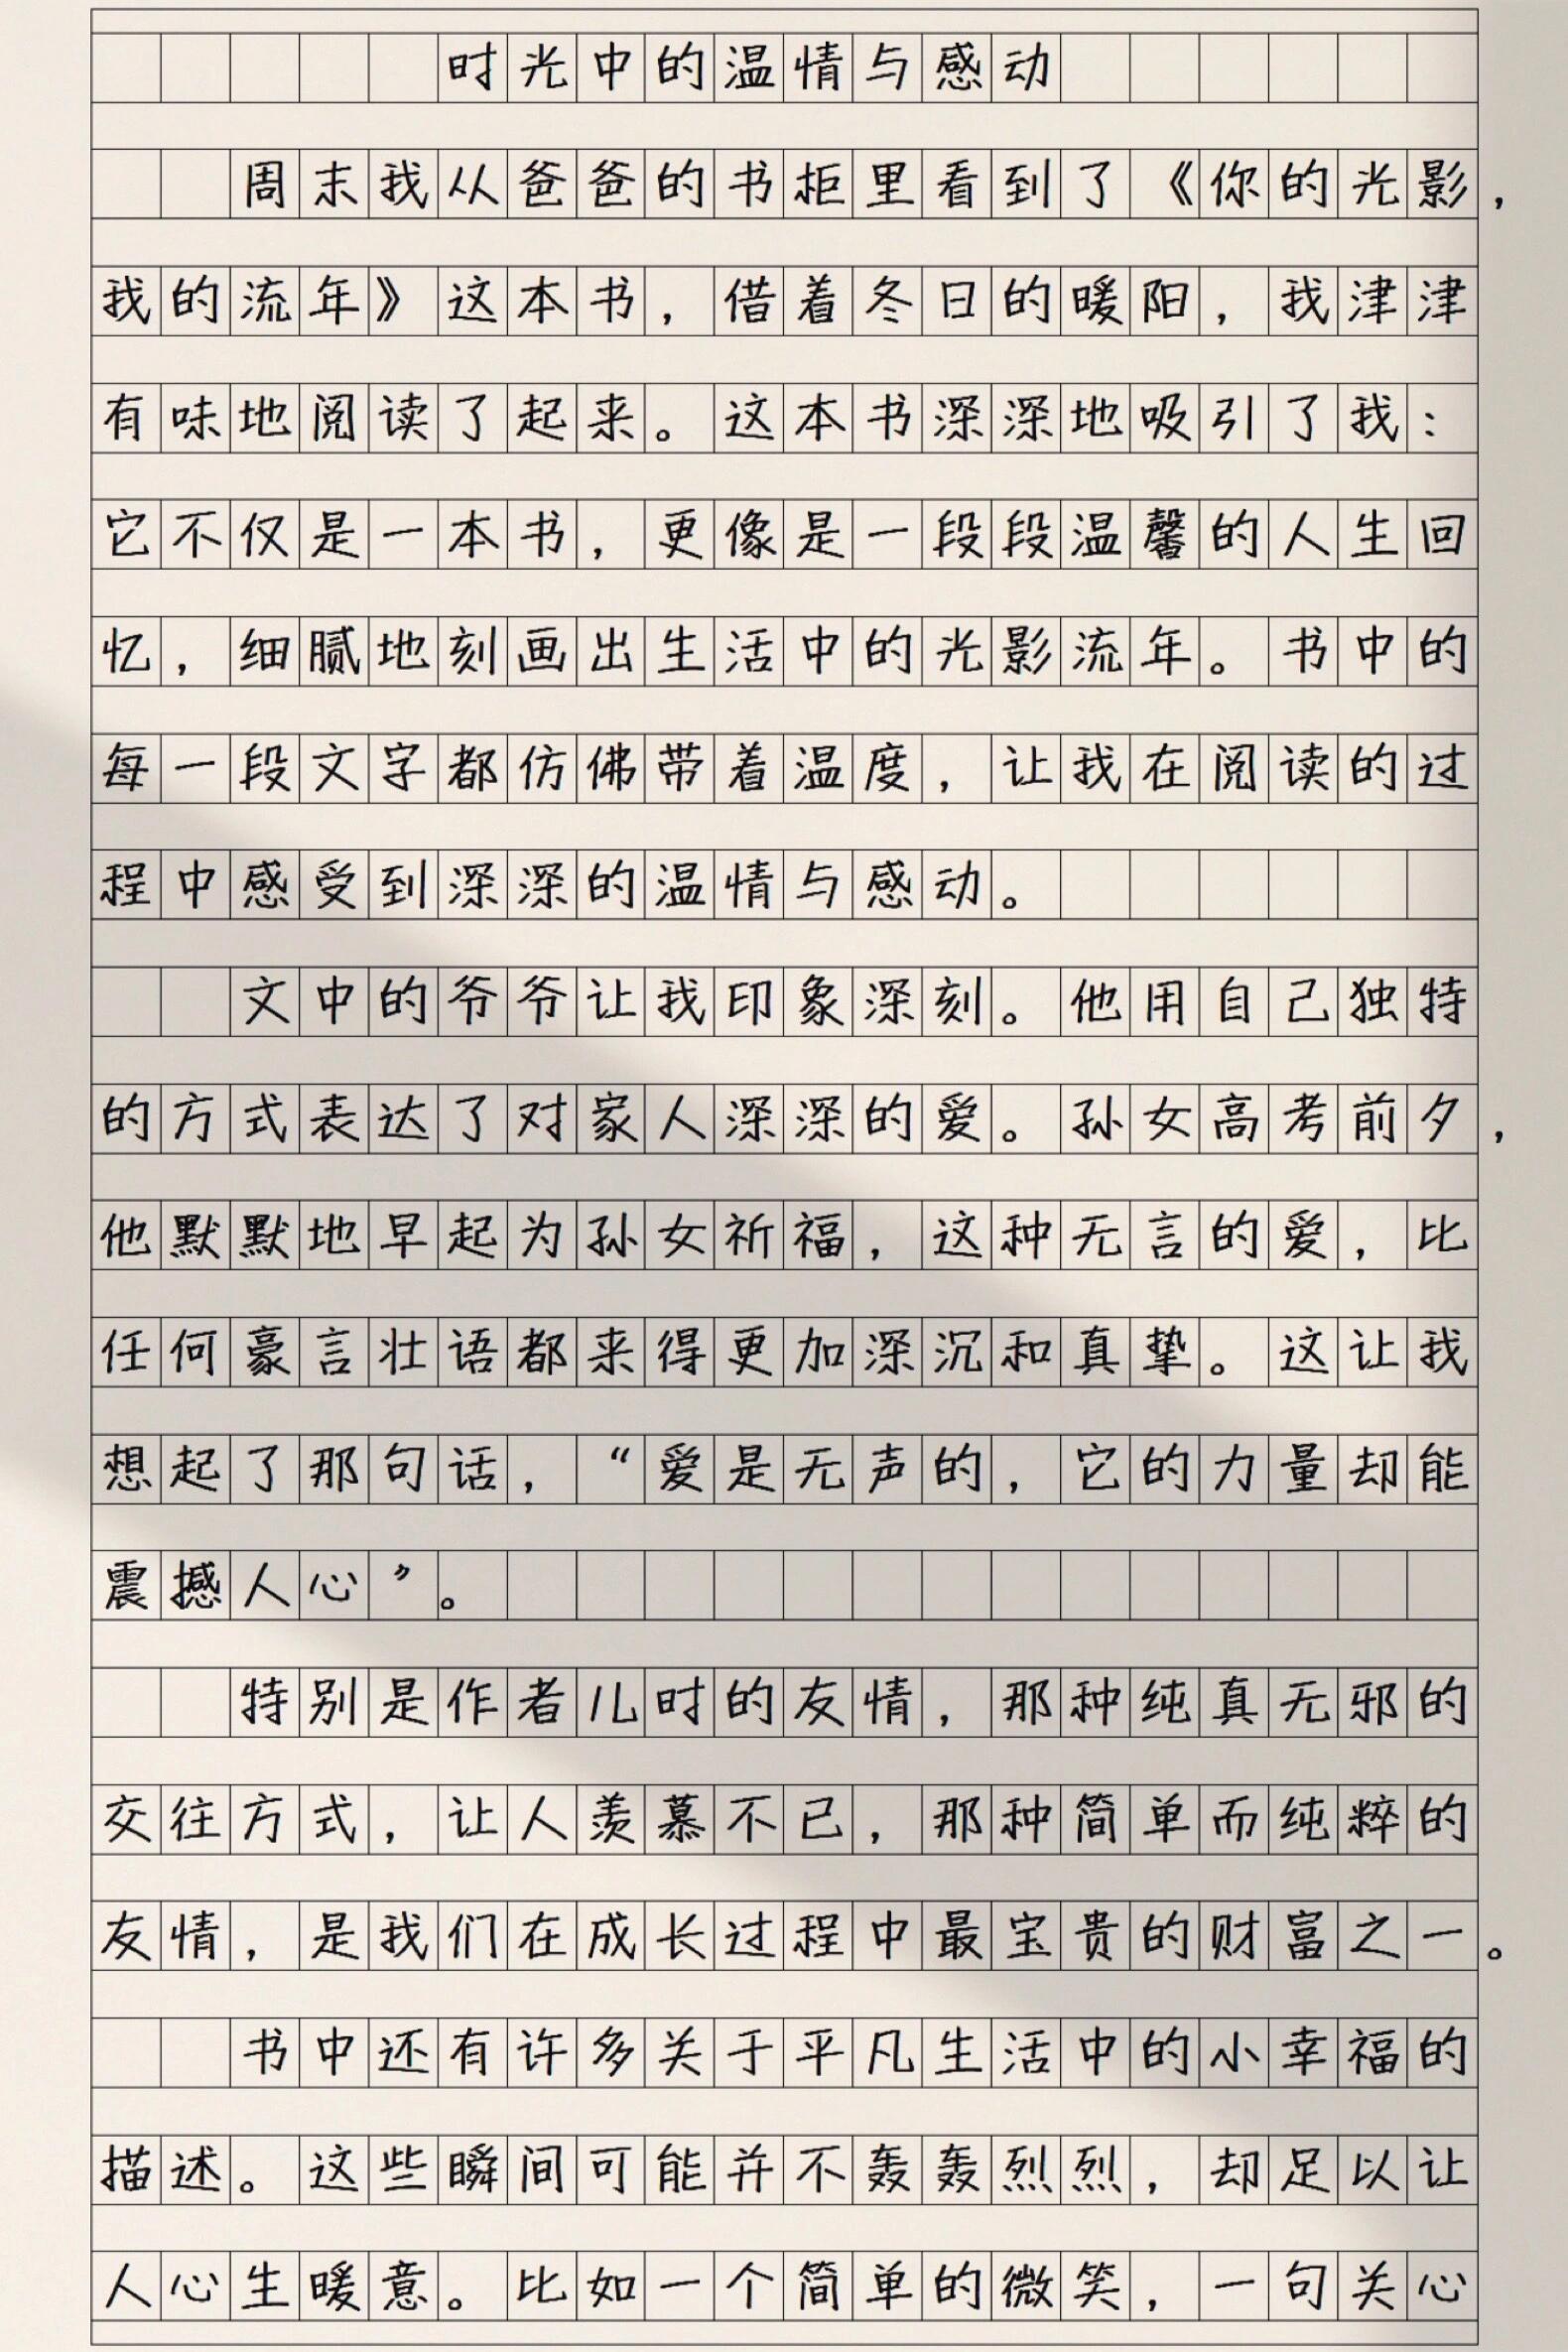 时光中的温情与感动
周末我从爸爸的书柜里看到了《你的光影，
我的流年》这本书，借着冬日的暖阳，我津津
有味地阅读了起来。这本书深深地吸引了我：
它不仅是一本书，更像是一段段温馨的人生回
忆，细腻地刻画出生活中的光影流年。书中的
每一段文字都仿佛带着温度，让我在阅读的过
程中感受到深深的温情与感动。
文中的爷爷让我印象深刻。他用自己独特
的方式表达了对家人深深的爱。孙女高考前夕，
他默默地早起为孙女祈福，这种无言的爱，比
任何豪言壮语都来得更加深沉和真挚。这让我
想起了那句话，“爱是无声的，它的力量却能
震撼人心”。
特别是作者儿时的友情，那种纯真无邪的
交往方式，让人羡慕不已，那种简单而纯粹的
友情，是我们在成长过程中最宝贵的财富之一。
书中还有许多关于平凡生活中的小幸福的
描述。这些瞬间可能并不轰轰烈烈，却足以让
人心生暖意。比如一个简单的微笑，一句关心